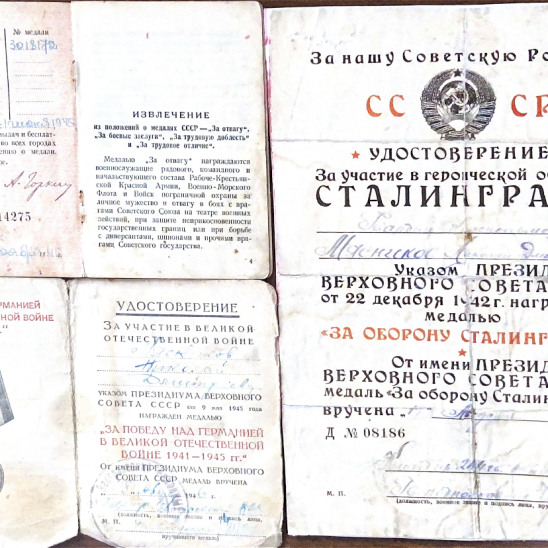 № медали
3018170
мая 1945
ыдач и бесплат-
во всех городах
ению о медали.
А. Горкин
14275
ИЗВЛЕЧЕНИЕ
из положений о медалях СССР —„За отвагу“,
„За боевые заслуги“, „За трудовую доблесть“
и „За трудовое отличие“.
Медалью „За отвагу“ награждаются
военнослужащие рядового, командного и
начальствующего состава Рабоче-Крестьян-
ской Красной Армии, Военно-Морского
Флота и Войск пограничной охраны за
личное мужество и отвагу в боях с вра-
гами Советского Союза на театре военных
действий, при защите неприкосновенности
государственных границ или при борьбе
с диверсантами, шпионами и прочими вра-
гами Советского государства.
4
ГЕРМАНИЕЙ
НОЙ ВОЙНЕ
УДОСТОВЕРЕНИЕ
ЗА УЧАСТИЕ В ВЕЛИКОЙ
ОТЕЧЕСТВЕННОЙ ВОЙНЕ
Николай
УКАЗОМ ПРЕЗИДИУМА ВЕРХОВНОГО
СОВЕТА СССР от 9 мая 1945 года
НАГРАЖДЕН МЕДАЛЬЮ
„ЗА ПОБЕДУ НАД ГЕРМАНИЕЙ
В ВЕЛИКОЙ ОТЕЧЕСТВЕННОЙ
ВОЙНЕ 1941—1945 гг.“
От имени ПРЕЗИДИУМА ВЕРХОВНОГО
СОВЕТА СССР МЕДАЛЬ ВРУЧЕНА
194
М. П.
(должность, военное звание и подпись лица,
вручившего медаль)
За нашу Советскую Ро
СС СР
УДОСТОВЕРЕНИЕ
За участие в героической об
СТАЛИНГРА
Указом ПРЕЗИД
ВЕРХОВНОГО СОВЕТА
от 22 декабря 1942 г. нагр
медалью
«ЗА ОБОРОНУ СТАЛИНГ
От имени ПРЕЗИД
ВЕРХОВНОГО СОВЕТА
медаль «За оборону Стали
вручена „
Д № 08186
М. П.
(должность, военное звание и подпись лица, вр